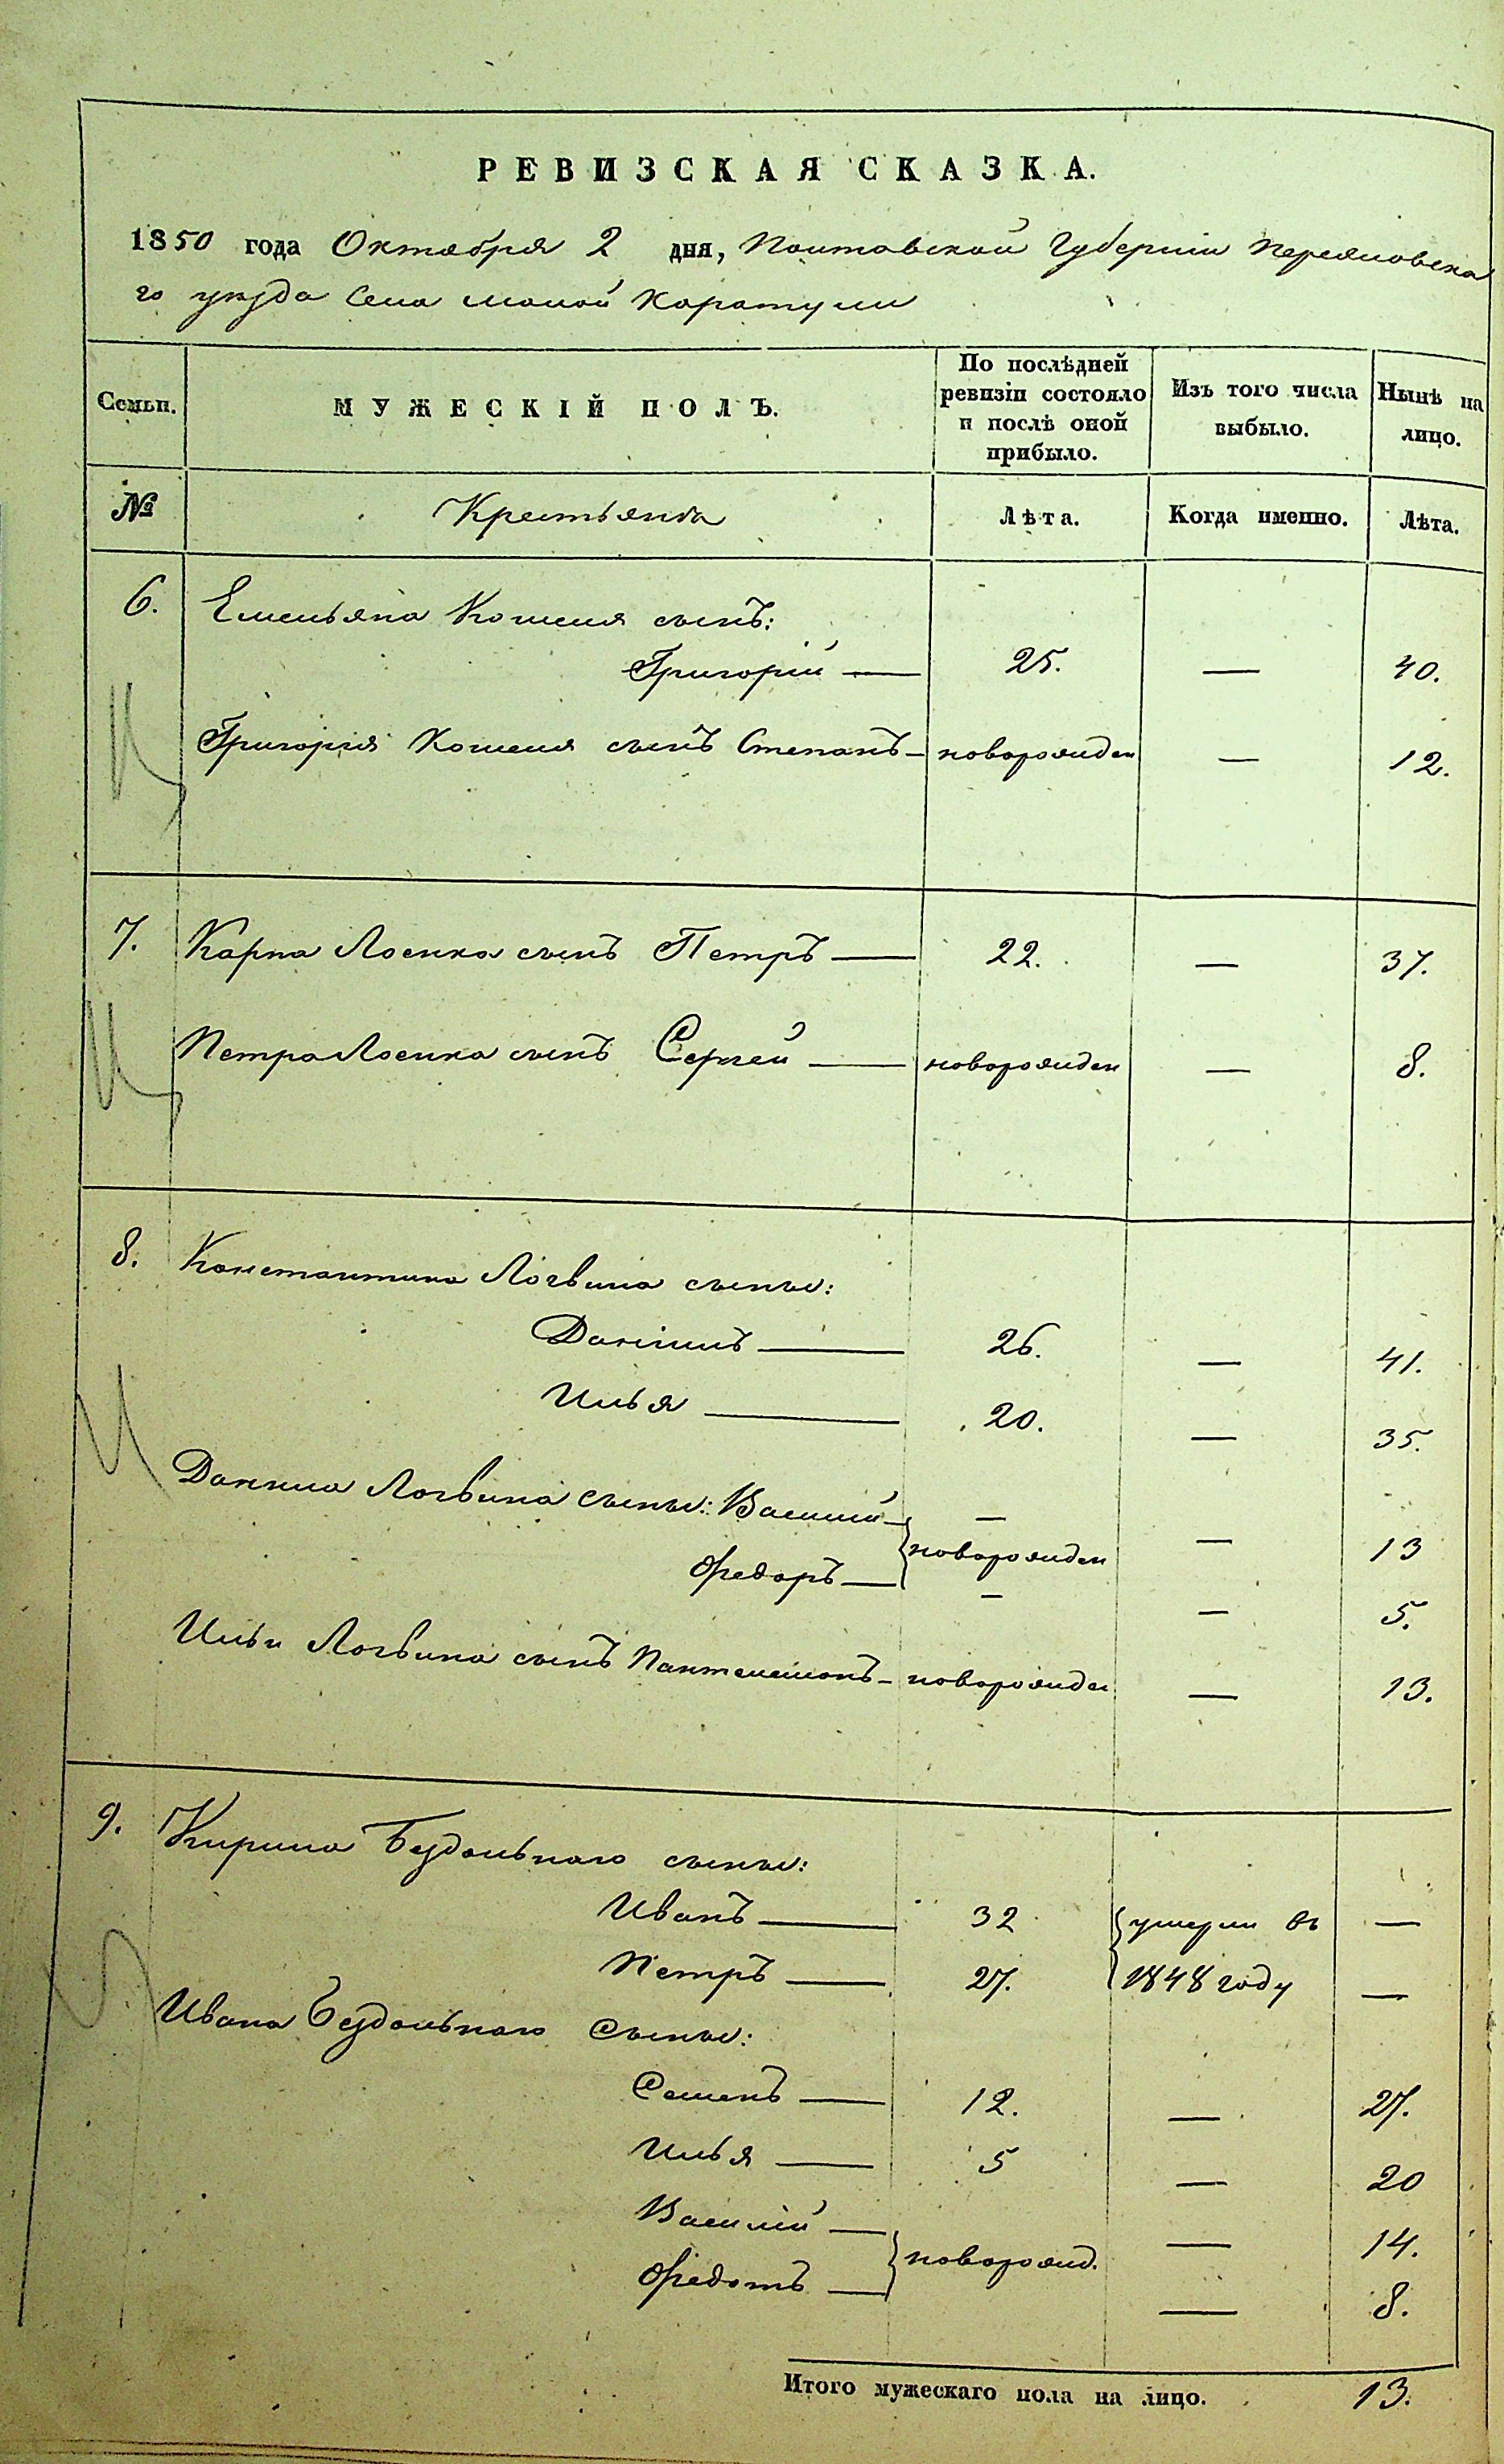 РЕВИЗСКАЯ СКАЗКА.
1850 года Октября 2 дня, Полтавской Губерніи Переяловска
го уезда Села малой Каратули
Семьи. МУЖЕСКІЙ ПОЛЪ. По послѣдней ревизіи состояло и послѣ оной прибыло. Изъ того числа выбыло. Нынѣ на лицо.
№ Крестьяна Лѣта. Когда именно. Лѣта.
6. Емельяна Кошеля сынъ:
Григорій — 25. — 40.
Григорія Кошеля сынъ Степанъ — новорожден — 12.
7. Карпа Лоенка сынъ Петръ — 22. — 37.
Петра Лоенка сынъ Сергей — новорожден — 8.
8. Константина Логвина сыны:
Даніилъ — 26. — 41.
Илья — 20. — 35.
Данила Логвина сыны: Василий — новорожден — 13
Федоръ — — 5.
Ильи Логвина сынъ Пантелемонъ — новорожден — 13.
9. Кирила Бездольнаго сыны:
Иванъ — 32 умерли въ —
Петръ — 27. 1848 году —
Ивана Бездольнаго Сыны:
Семенъ — 12. — 27.
Илья — 5 — 20
Василій — новорожд. — 14.
Федотъ — — 8.
Итого мужескаго пола на лицо. 13.